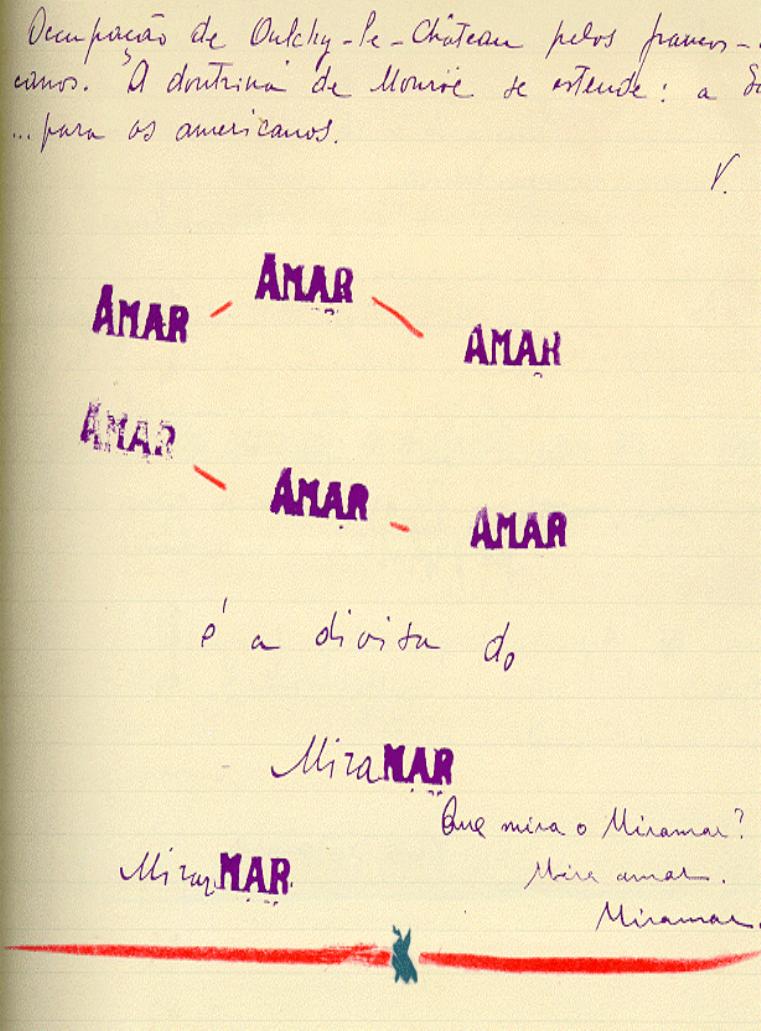 Ocupação de Oulchy-le-Château pelos franco-
canos. A doutrina de Monroe se estende: a
...para os americanos.
V.
AMAR - AMAR - AMAR
AMAR - AMAR - AMAR
é a divisa do
MiraMAR
Que mira o Miramar?
MirarMAR
Mira amar.
Miramar.